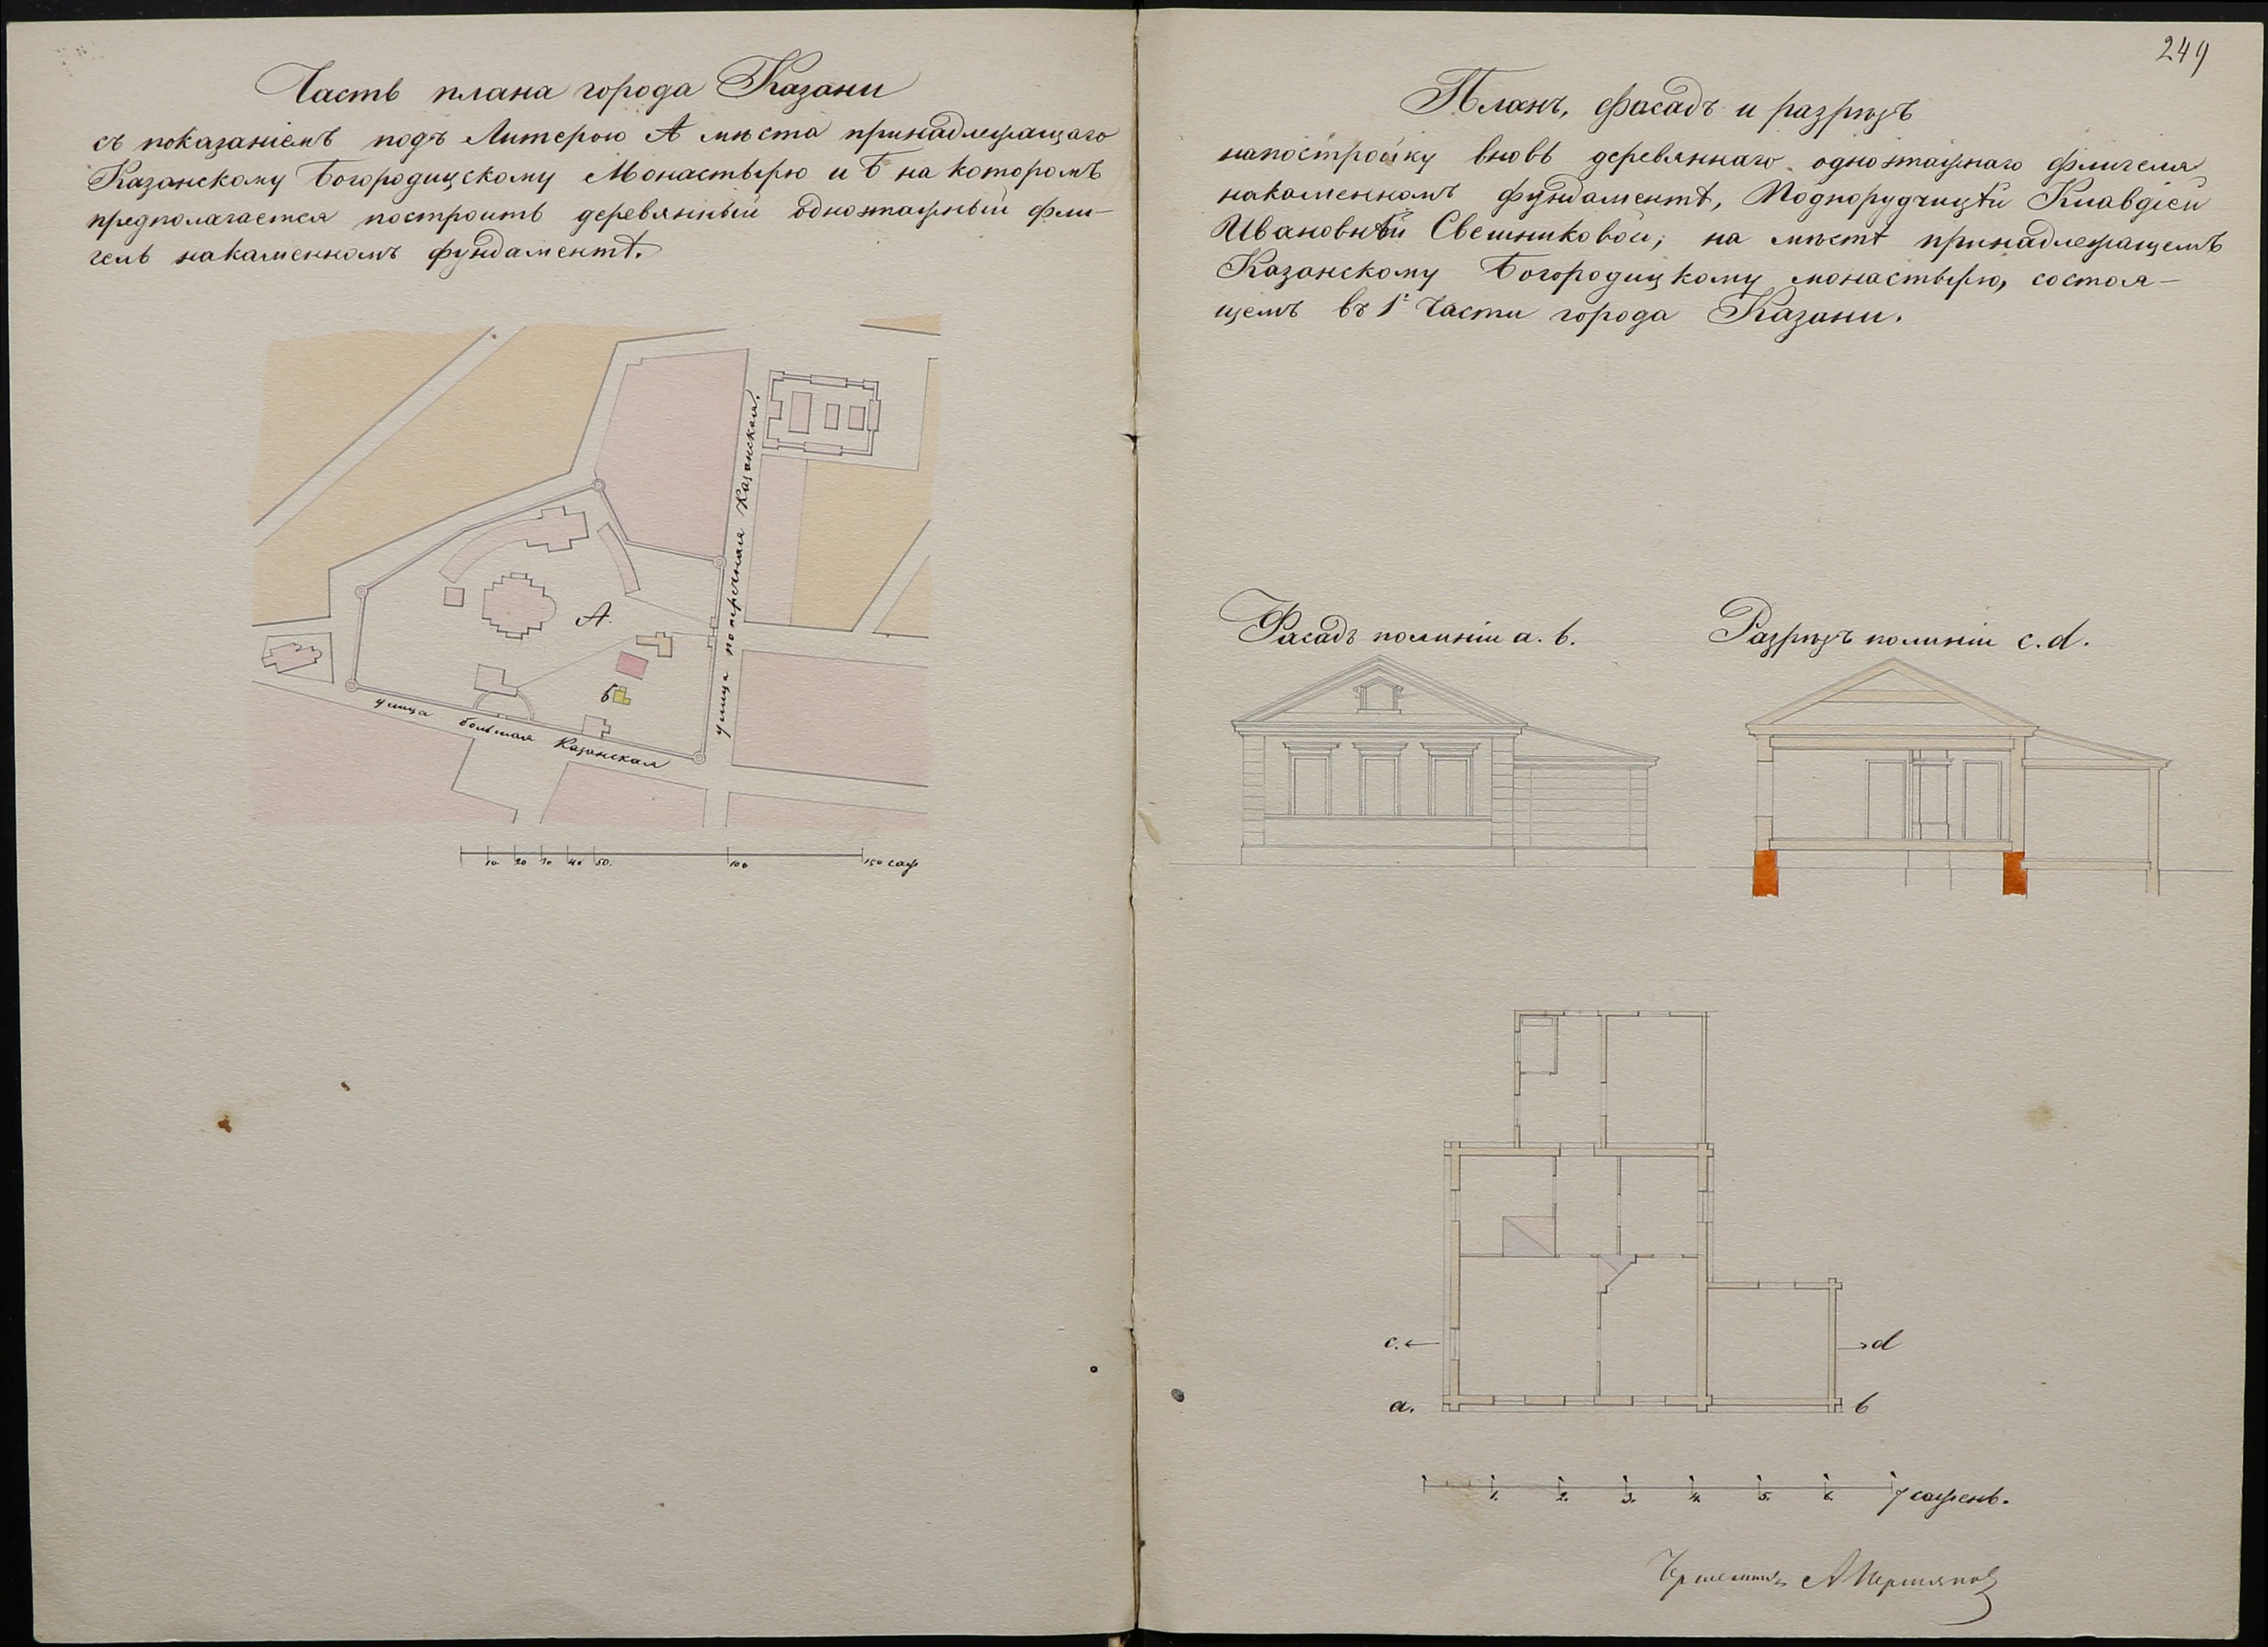 Часть плана города Казани
съ показаніемъ подъ Литерою А мѣста принадлежащаго
Казанскому Богородицскому Монастырю и Б на которомъ
предполагается построить деревянный одноэтажный фли-
гель накаменномъ фундаментѣ.
А.
Б
улица поперечная Казанская.
улица большая Казанская
10. 20 30 40 50. 100 150 саж
249
Планъ, фасадъ и разрѣзъ
напостройку вновь деревяннаго одноэтажнаго флигеля
накаменномъ фундаментѣ, Подпорудчицѣй Клавдіей
Ивановнѣй Свешниковой; на мѣстѣ принадлежащемъ
Казанскому Богородицкому монастырю, состоя-
щемъ въ 1й Части города Казани.
Фасадъ полиніи a. b.
Разрѣзъ полиніи c. d.
c. d
a. b
1. 2. 3. 4. 5. 6. 7 сажень.